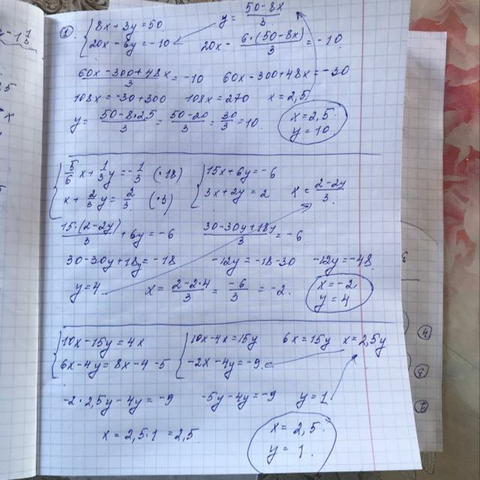 ① { 8x + 3y = 50    y = (50 - 8x)/3
20x - 6y = -10    20x - 6·(50-8x)/3 = -10
(60x - 300 + 48x)/3 = -10    60x - 300 + 48x = -30
108x = -30 + 300    108x = 270    x = 2,5
y = (50 - 8·2,5)/3 = (50-20)/3 = 30/3 = 10.    x = 2,5. y = 10
{ 5/6 x + 1/3 y = -1/3 (·18)    { 15x + 6y = -6
x + 2/3 y = 2/3 (·3)    3x + 2y = 2    x = (2-2y)/3
15·(2-2y)/3 + 6y = -6    (30-30y+18y)/3 = -6
30 - 30y + 18y = -18    -12y = -18 - 30    -12y = -48.
y = 4    x = (2-2·4)/3 = -6/3 = -2.    x = -2 y = 4
{ 10x - 15y = 4x    { 10x - 4x = 15y    6x = 15y    x = 2,5y
6x - 4y = 8x - 4 - 5    -2x - 4y = -9
-2·2,5y - 4y = -9    -5y - 4y = -9    y = 1
x = 2,5·1 = 2,5    x = 2,5.
y = 1.